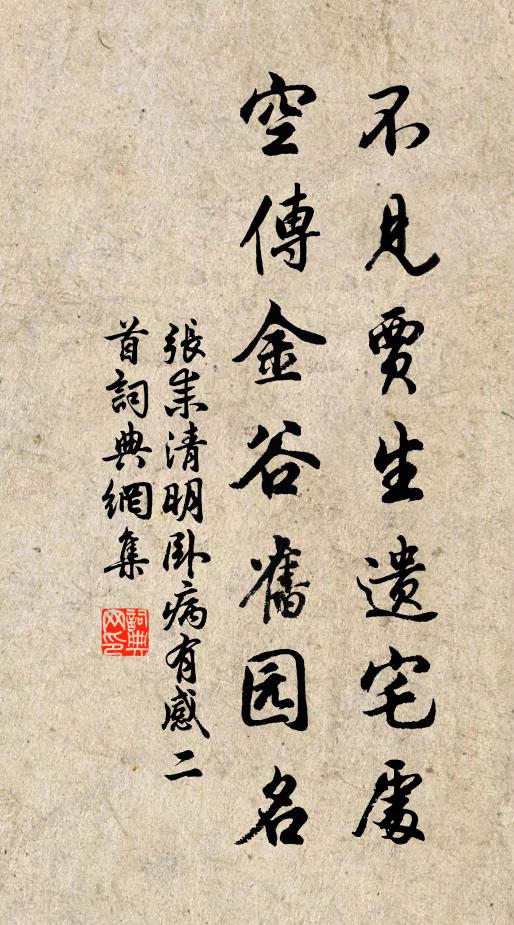 不見賈生遺宅處
空傳金谷舊园名
張耒清明卧病有感二
首詞典網集
詞典
网印